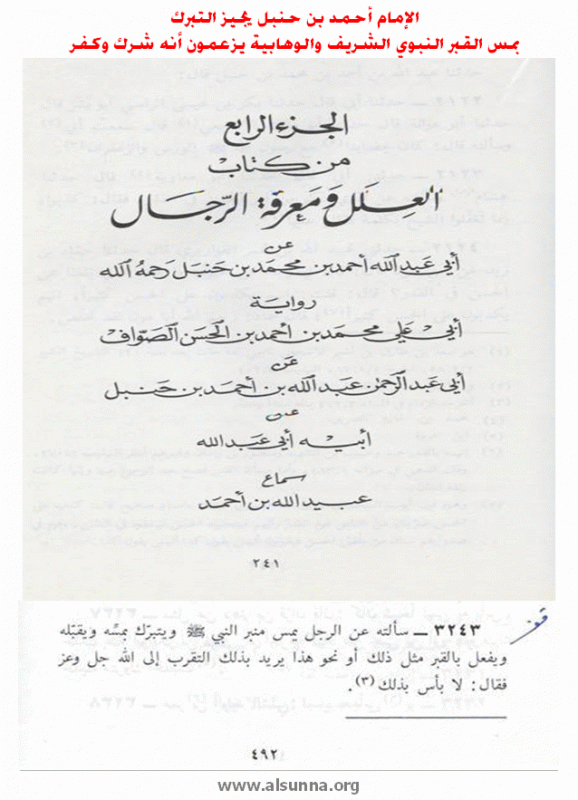 الإمام أحمد بن حنبل يجيز التبرك
بمس القبر النبوي الشريف والوهابية يزعمون أنه شرك وكفر
الجزء الرابع
من كتاب
العلل ومعرفة الرجال
عن
أبي عبد الله أحمد بن محمد بن حنبل رحمه الله
رواية
أبي علي محمد بن أحمد بن الحسن الصواف
عن
أبي عبد الرحمن عبد الله بن أحمد بن حنبل
عن
أبيه أبي عبد الله
سماع
عبيد الله بن أحمد
٢٤١
٣٢٤٣ ــ سألته عن الرجل يمس منبر النبي ﷺ ويتبرّك بمسِّه ويقبّله
ويفعل بالقبر مثل ذلك أو نحو هذا يريد بذلك التقرب إلى الله جل وعز
فقال: لا بأس بذلك(٣).
٤٩٢
www.alsunna.org